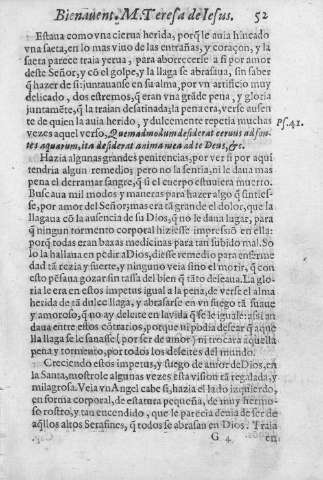 Bienauent. M. Teresa de Iesus. 52
Estaua como vna cierua herida, porq̃ le auia hincado
vna saeta, en lo mas viuo de las entrañas, y coraçon, y la
saeta parece traia yerua, para aborrecerse a si por amor
deste Señor, y cõ el golpe, y la llaga se abrasaua, sin saber
q̃ hazer de si: juntauanse en su alma, por vn artificio muy
delicado, dos estremos, q̃ eran vna grãde pena, y gloria
juntamẽte, q̃ la traian desatinada; la pena era, verse ausen
te de quien la auia herido, y dulcemente repetia muchas
vezes aquel verso, Quemadmodum desiderat ceruus ad fon-
Ps. 41.
tes aquarum, ita desiderat anima mea ad te Deus, &c.
Hazia algunas grandes penitencias, por ver si por aqui
tendria algun remedio; pero no la sentia, ni le daua mas
pena el derramar sangre, q̃ si el cuerpo estuuiera muerto.
Buscaua mil modos y maneras para hazer algo q̃ sinties-
se, por amor del Señor; mas era tã grande el dolor, que la
llagaua cõ la ausencia de su Dios, q̃ no le daua lugar, para
q̃ ningun tormento corporal hiziesse impressiõ en ella:
porq̃ todas eran baxas medicinas para tan subido mal. So
lo la hallaua en pedir a Dios, diesse remedio para enferme
dad tã rezia y fuerte, y ninguno veia sino el morir, q̃ con
esto pẽsaua gozar sin tassa del bien q̃ tãto deseaua. La glo
ria le era en estos impetus igual a la pena, de verse el alma
herida de tã dulce llaga, y abrasarse en vn fuego tã suaue
y amoroso, q̃ no ay deleite en la vida q̃ se le iguale: assi an
daua entre estos cõtrarios, porque ni podia desear q̃ aque
lla llaga se le sanasse (por ser de amor) ni trocara aquella
pena y tormento, por todos los deleites del mundo.
Creciendo estos impetus, y fuego de amor de Dios, en
la Santa, mostrole algunas vezes esta vision tã regalada, y
milagrosa. Veia vn Angel cabe si, hazia el lado izquierdo,
en forma corporal, de estatura pequeña, de muy hermo-
so rostro, y tan encendido, que le parecia deuia de ser de
aq̃llos altos Serafines, q̃ todos se abrasan en Dios. Traia
G 4 en